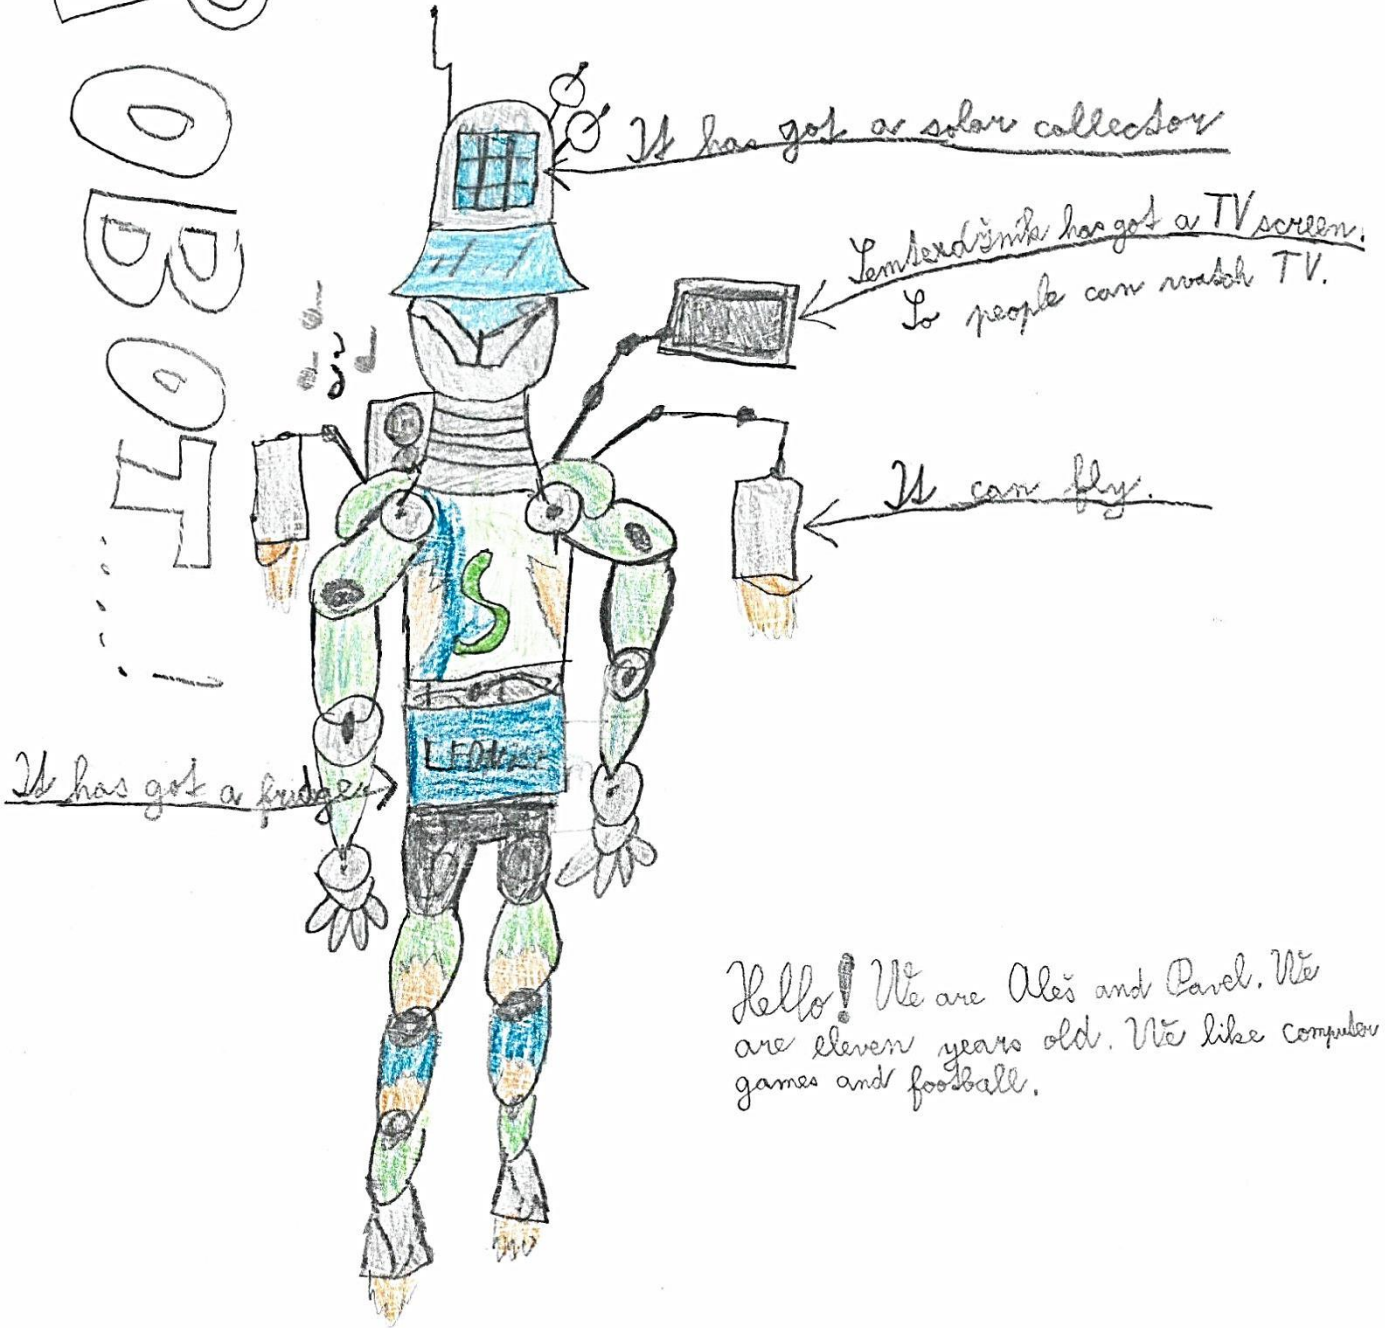 ROBOT...!
It has got a solar collector
has got a TV screen.
So people can watch TV.
It can fly.
S
It has got a fridge
Hello! We are Aleš and Pavel. We
are eleven years old. We like computer
games and football.